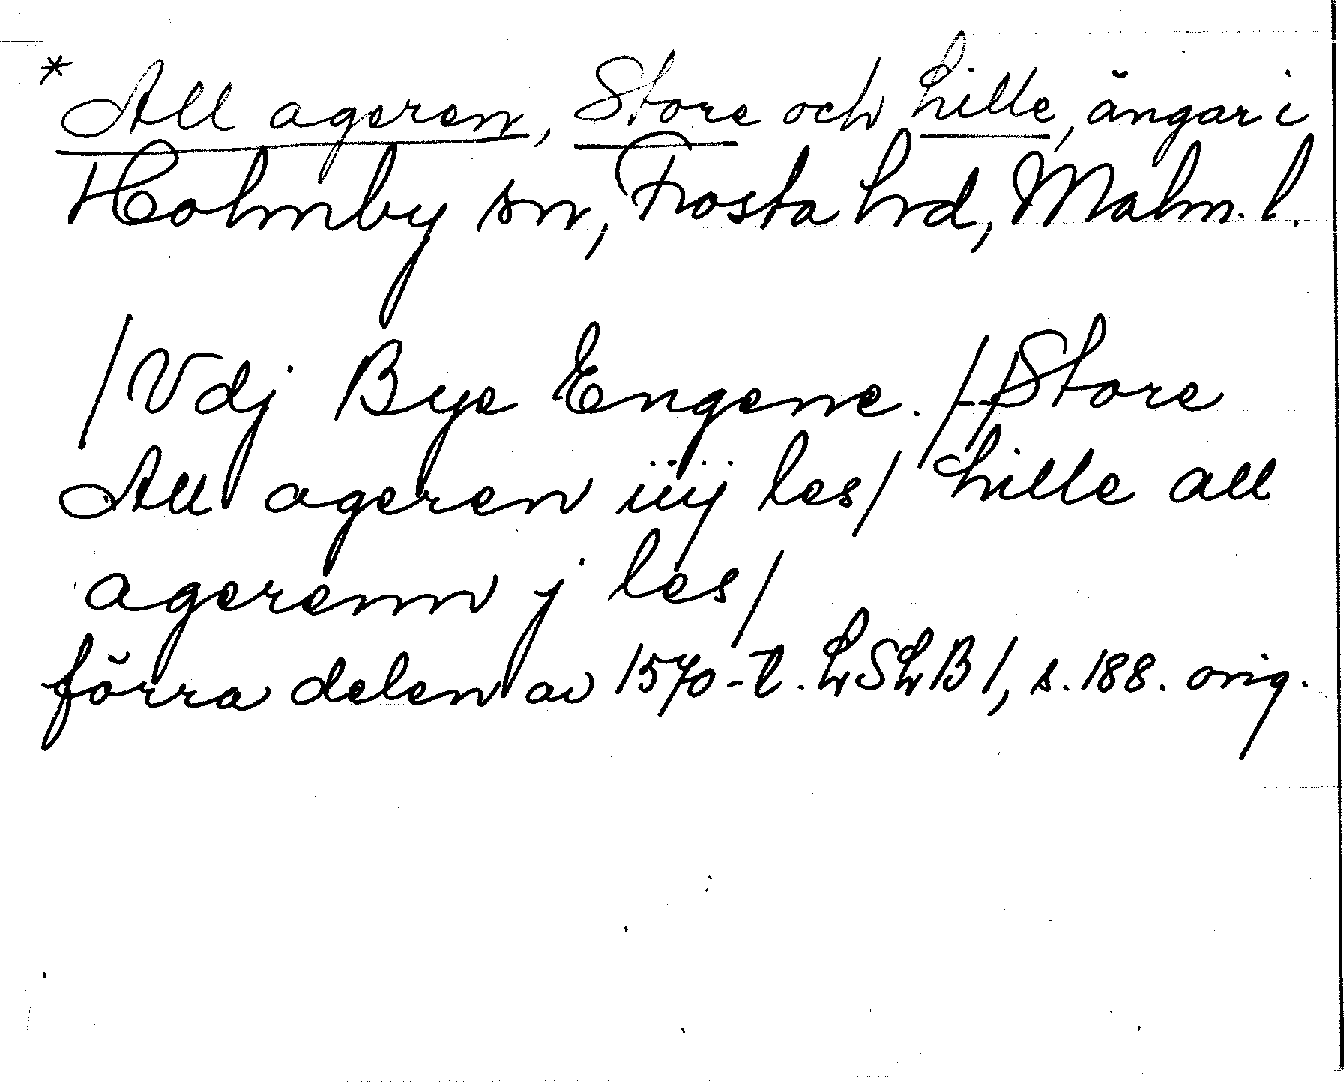 * All ageren, Store och Lille, ängar i
Holmby sn, Frosta hrd, Malm. l.
/Vdj Bye Engene. /--/ Store
All ageren iiij les/ Lille all
agerenn j les/
förra delen av 1570-t. LSLB 1, s. 188. orig.